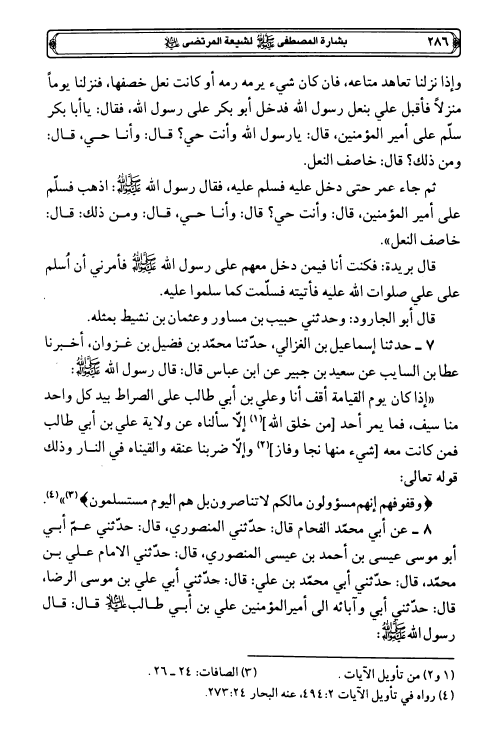 ٢٨٦ بشارة المصطفى ﷺ لشيعة المرتضى ﷷ
وإذا نزلنا تعاهد متاعه، فان كان شيء يرمه رمه أو كانت نعل خصفها، فنزلنا يوماً
منزلاً فأقبل علي بنعل رسول الله فدخل أبو بكر على رسول الله، فقال: ياأبا بكر
سلّم على أمير المؤمنين، قال: يارسول الله وأنت حي؟ قال: وأنـا حـي، قـال:
ومن ذلك؟ قال: خاصف النعل.
ثم جاء عمر حتى دخل عليه فسلم عليه، فقال رسول الله ﷺ: اذهب فسلّم
على أمير المؤمنين، قال: وأنت حي؟ قال: وأنـا حـي، قـال: ومـن ذلك: قـال:
خاصف النعل».
قال بريدة: فكنت أنا فيمن دخل معهم على رسول الله ﷺ فأمرني أن اُسلم
على علي صلوات الله عليه فأتيته فسلّمت كما سلموا عليه.
قال أبو الجارود: وحدثني حبيب بن مساور وعثمان بن نشيط بمثله.
٧ ـ حدثنا إسماعيل بن الغزالي، حدّثنا محمّد بن فضيل بن غـزوان، أخبـرنا
عطا بن السايب عن سعيد بن جبير عن ابن عباس قال: قال رسول الله ﷺ:
«إذا كان يوم القيامة أقف أنا وعلي بن أبي طالب على الصراط بيد كل واحد
منا سيف، فما يمر أحد [من خلق الله](١) إلّا سألناه عن ولاية علي بن أبي طالب
فمن كانت معه [شيء منها نجا وفاز](٢) وإلّا ضربنا عنقه والقيناه في النار وذلك
قوله تعالى:
﴿وقفوهم إنهم مسؤولون مالكم لاتناصرون بل هم اليوم مستسلمون﴾(٣)»(٤).
٨ ـ عن أبي محمّد الفحام قال: حدّثني المنصوري، قال: حدّثني عـمّ أبـي
أبو موسى عيسى بن أحمد بن عيسى المنصوري، قال: حدّثني الامام عـلي بـن
محمّد، قال: حدّثني أبي محمّد بن علي: قال: حدّثني أبي علي بن موسى الرضا،
قال: حدّثني أبي وآبائه الى أميرالمؤمنين علي بن أبـي طـالب ﷷ قـال: قـال
رسول الله ﷺ:
(١ و٢) من تأويل الآيات . (٣) الصافات: ٢٤ ـ ٢٦ .
(٤) رواه في تأويل الآيات ٢: ٤٩٤، عنه البحار ٢٤: ٢٧٣.